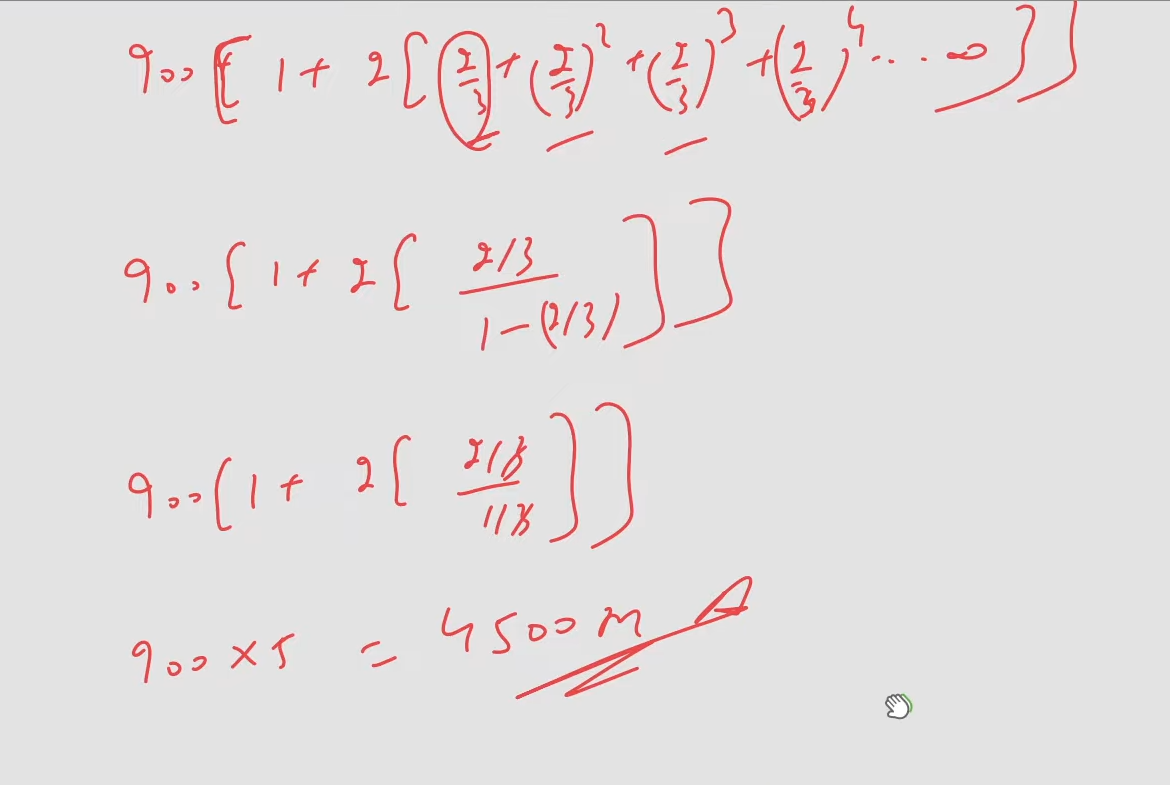 900 [ 1 + 2 [ 2/3 + (2/3)² + (2/3)³ + (2/3)⁴ ... ∞ ] ]
900 [ 1 + 2 [ 2/3 / 1 - (2/3) ] ]
900 [ 1 + 2 [ 2/3 / 1/3 ] ]
900 × 5 = 4500 m A